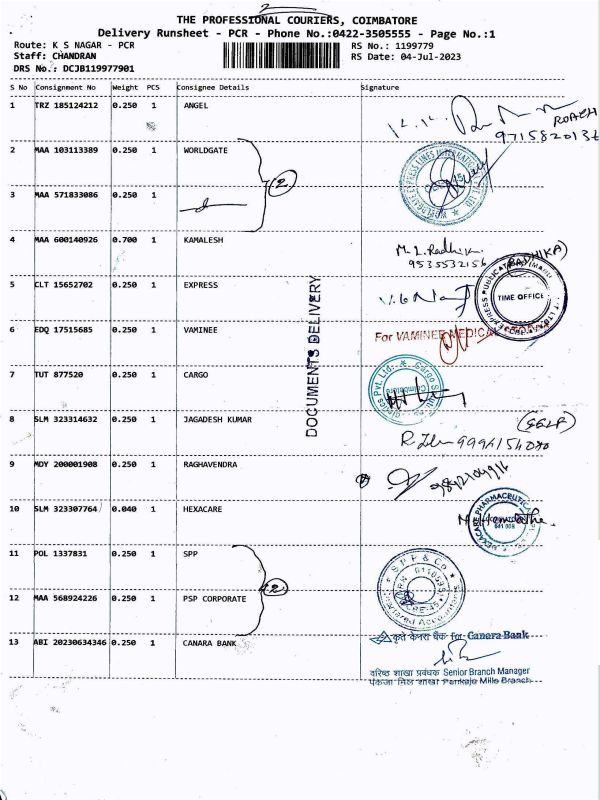 2
THE PROFESSIONAL COURIERS, COIMBATORE
Delivery Runsheet - PCR - Phone No.:0422-3505555 - Page No.:1
Route: K S NAGAR - PCR RS No.: 1199779
Staff: CHANDRAN RS Date: 04-Jul-2023
DRS No.: DCJB119977901
S No Consignment No Weight PCS Consignee Details Signature
1 TRZ 185124212 0.250 1 ANGEL
9715820136
2 MAA 103113389 0.250 1 WORLDGATE
2
3 MAA 571833086 0.250 1
4 MAA 600140926 0.700 1 KAMALESH
M. L. Radhika (RADHIKA)
9535532156
5 CLT 15652702 0.250 1 EXPRESS
TIME OFFICE
6 EDQ 17515685 0.250 1 VAMINEE
For VAMINEE MEDICAL
DOCUMENTS DELIVERY
7 TUT 877520 0.250 1 CARGO
Coimbatore
8 SLM 323314632 0.250 1 JAGADESH KUMAR
(SELF)
9 MDY 200001908 0.250 1 RAGHAVENDRA
10 SLM 323307764 0.040 1 HEXACARE
HEXACARE PHARMACEUTICAL
11 POL 1337831 0.250 1 SPP
2
S P P & Co
12 MAA 568924226 0.250 1 PSP CORPORATE
13 ABI 20230634346 0.250 1 CANARA BANK
कृते केनरा बैंक For Canara Bank
वरिष्ठ शाखा प्रबंधक Senior Branch Manager
पंकजा मिल शाखा Pankaja Mills Branch